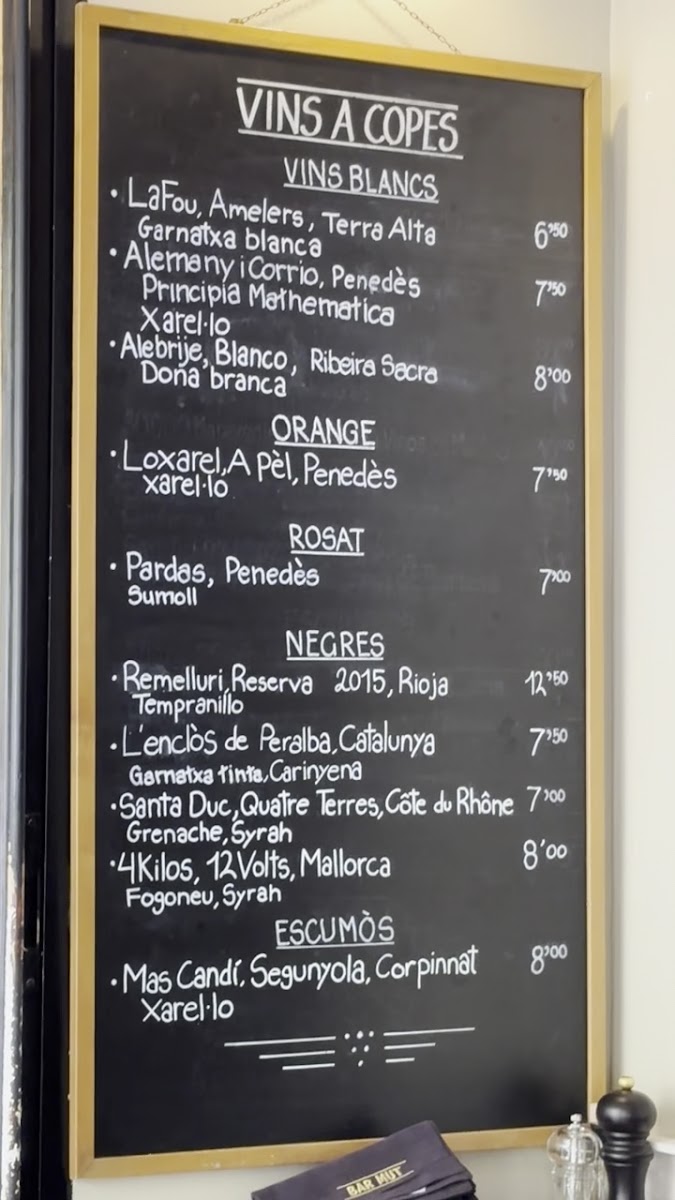 VINS A COPES
VINS BLANCS
· LaFou, Amelers, Terra Alta 6'50
Garnatxa blanca
· Alemany i Corrio, Penedès 7'50
Principia Mathematica
Xarel·lo
· Alebrije, Blanco, Ribeira Sacra 8'00
Dona branca
ORANGE
· Loxarel, A Pèl, Penedès 7'50
xarel·lo
ROSAT
· Pardas, Penedès 7'00
Sumoll
NEGRES
· Remelluri, Reserva 2015, Rioja 12'50
Tempranillo
· L'enclòs de Peralba, Catalunya 7'50
Garnatxa tinta, Carinyena
· Santa Duc, Quatre Terres, Côte du Rhône 7'00
Grenache, Syrah
· 4Kilos, 12Volts, Mallorca 8'00
Fogoneu, Syrah
ESCUMÒS
· Mas Candí, Segunyola, Corpinnat 8'00
Xarel·lo
BAR MUT